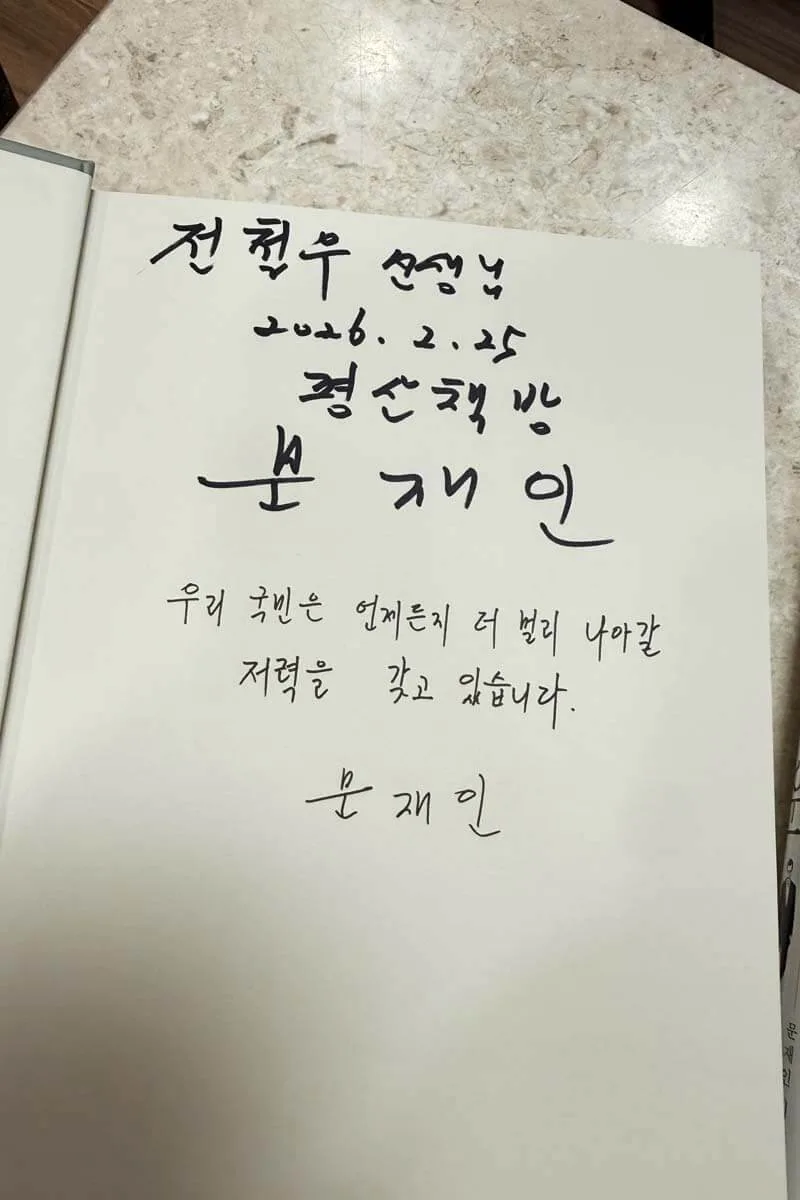 전철우 선생님
2026. 2. 25
평산책방
문재인
우리 국민은 언제든지 더 멀리 나아갈
저력을 갖고 있습니다.
문재인
문재인